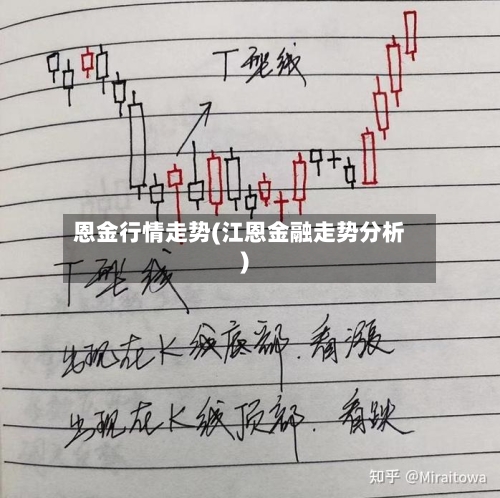 T型线
恩金行情走势(江恩金融走势分析
)
T型线
出现在K线底部.看漲
出现在K线顶部.看跌
知乎 @Miraitowa